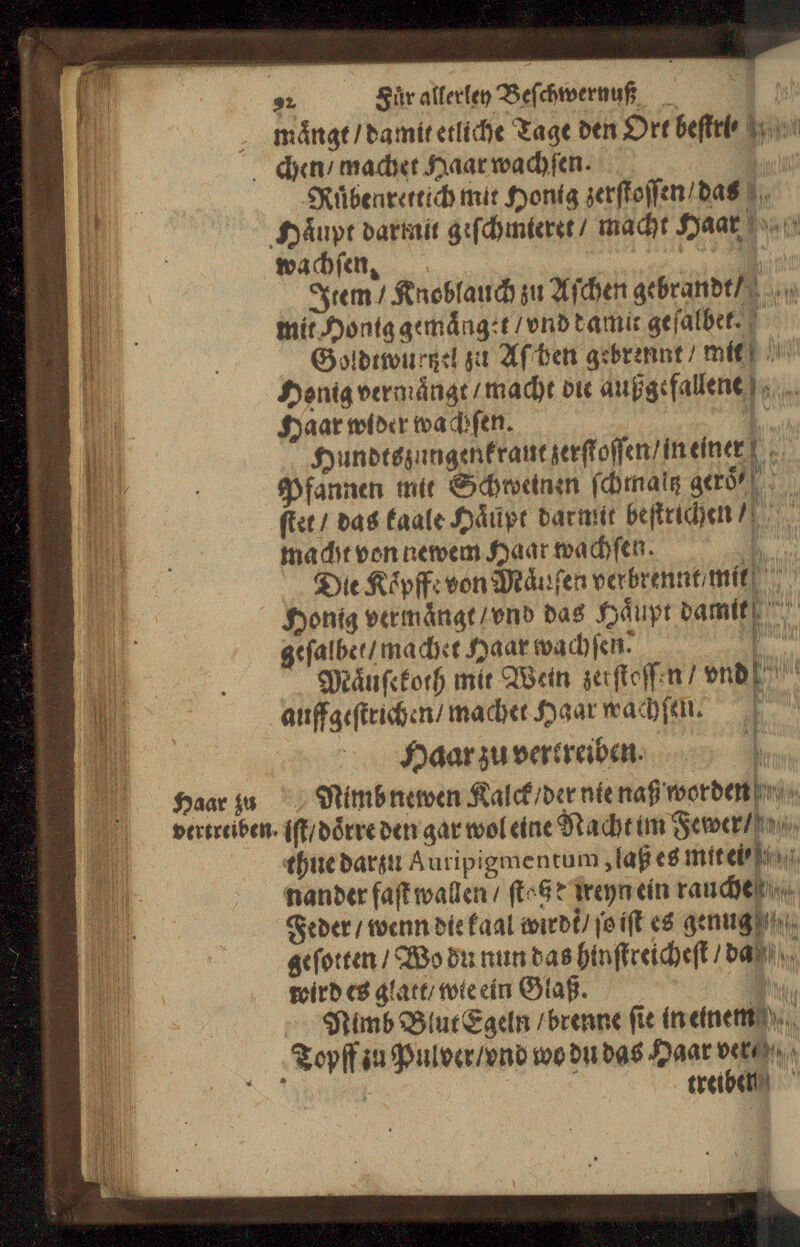 92 Fuͤr allerley Beſchwernuß
maͤngt / damit etliche Tage den Ort beſtri⸗
chen / machet Haar wachſen.
Ruͤbenrettich mit Honig zerſtoſſen / das
Haͤupt darmit geſchmieret / macht Haar
wachſen.
Item / Knoblauch zu Aſchen gebrandt /
mit Honig gemaͤnget / vnd damit geſalbet.
Goldtwurtzel zu Aſchen gebrennt / mit
Honig vermaͤngt / macht die außgefallene
Haar wider wachſen.
Hundtszungenkraut zerſtoſſen / in einer
Pfannen mit Schweinen ſchmaltz geroͤ⸗
ſtet / das kaale Haͤupt darmit beſtrichen /
macht von newem Haar wachſen.
Die Koͤpffe von Maͤuſen verbrennt / mit
Honig vermaͤngt / vnd das Haͤupt damit
geſalbet / machet Haar wachſen.
Maͤuſekoth mit Wein zerſtoſſen / vnd
auffgeſtrichen / machet Haar wachſen.
Haar zu vertreiben.
Haar zu Nimb newen Kalck / der nie naß worden
vertreiben. iſt / doͤrre den gar wol eine Nacht im Fewer /
thue darzu Auripigmentum, laß es mit ei⸗
nander faſt wallen / ſtoße dreyn ein rauche
Feder / wenn die kaal wirdt / ſo iſt es genug
geſotten / Wo du nun das hinſtreicheſt / da
wird es glatt / wie ein Glaß.
Nimb Blut Egeln / brenne ſie in einem
Topff zu Pulver / vnd wo du das Haar ver⸗
treiben